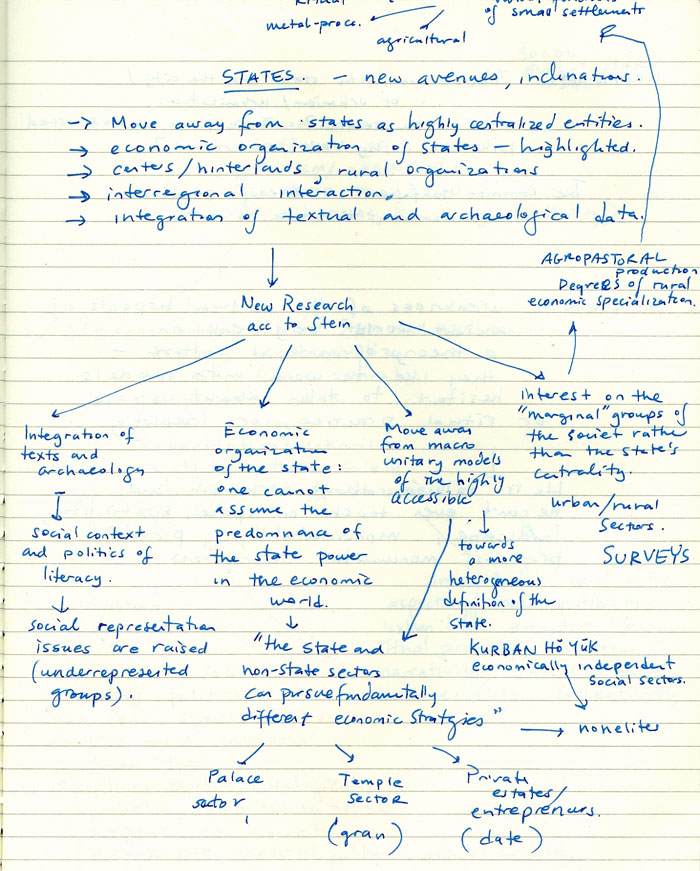 metal-proc.
agricultural
of small settlements
STATES. - new avenues, inclinations.
-> Move away from states as highly centralized entities.
-> economic organization of states - highlighted.
-> centers/hinterlands, rural organizations
-> interregional interaction.
-> integration of textual and archaeological data.
AGROPASTORAL
production
Degrees of rural
economic specialization.
New Research
acc to Stein
Integration of
texts and
archaeology
social context
and politics of
literacy.
social representation
issues are raised
(underrepresented
groups).
Economic
organization
of the state:
one cannot
assume the
predomnance of
the state power
in the economic
world.
"the State and
non-state sectors
can pursue fundamentally
different economic Stratgies"
Move away
from macro
unitary models
of the highly
accessible
towards
a more
heterogeneous
definition of the
state.
Interest on the
"marginal" groups of
the soviet rathe
than the state's
centrality.
urban/rural
Sectors.
SURVEYS
KURBAN HÖYÜK
economically independent
Social sectors.
nonelites
Palace
sector
Temple
SECTOR
(gran)
Private
estates/
entreprenurs.
(date)